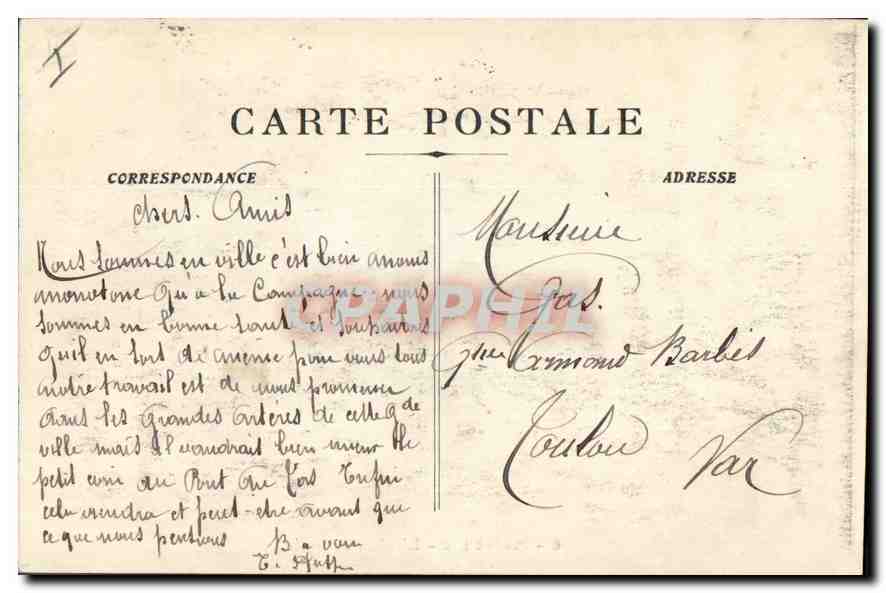 I
CARTE POSTALE
CORRESPONDANCE
chers. Amis
Nous sommes en ville c'est bien amoins
monotone qu'a la Campagne nous
sommes en bonne santé et souhaitons
qu'il en soit de même pour vous tous
notre travail est de nous promener
dans les grandes artères de cette gde
ville mais il vaudrait bien mieux le
petit coin du Pont du Enfin
cela viendra et peut-etre avant que
ce que nous pensions B a vous
ADRESSE
Monsieur
Gas.
Armand Barbès
Toulon Var
CPAPHIL